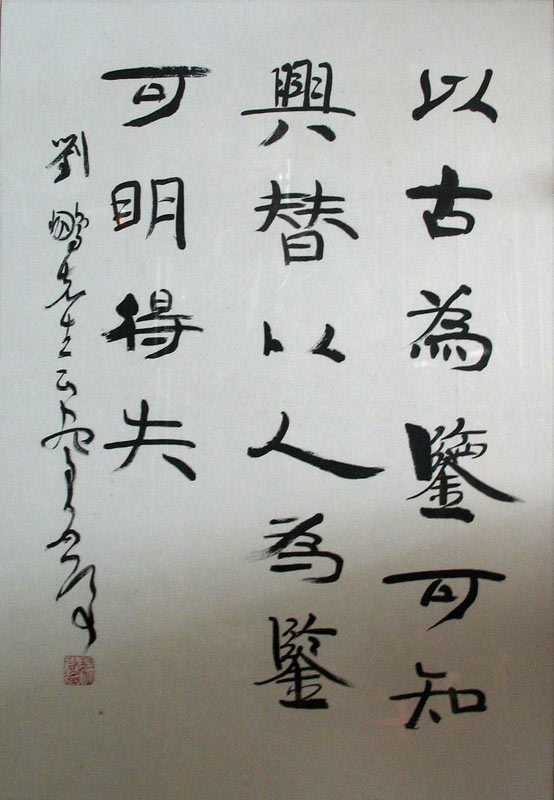 以古為鑒可知
興替以人為鑒
可明得失
劉鵬先生